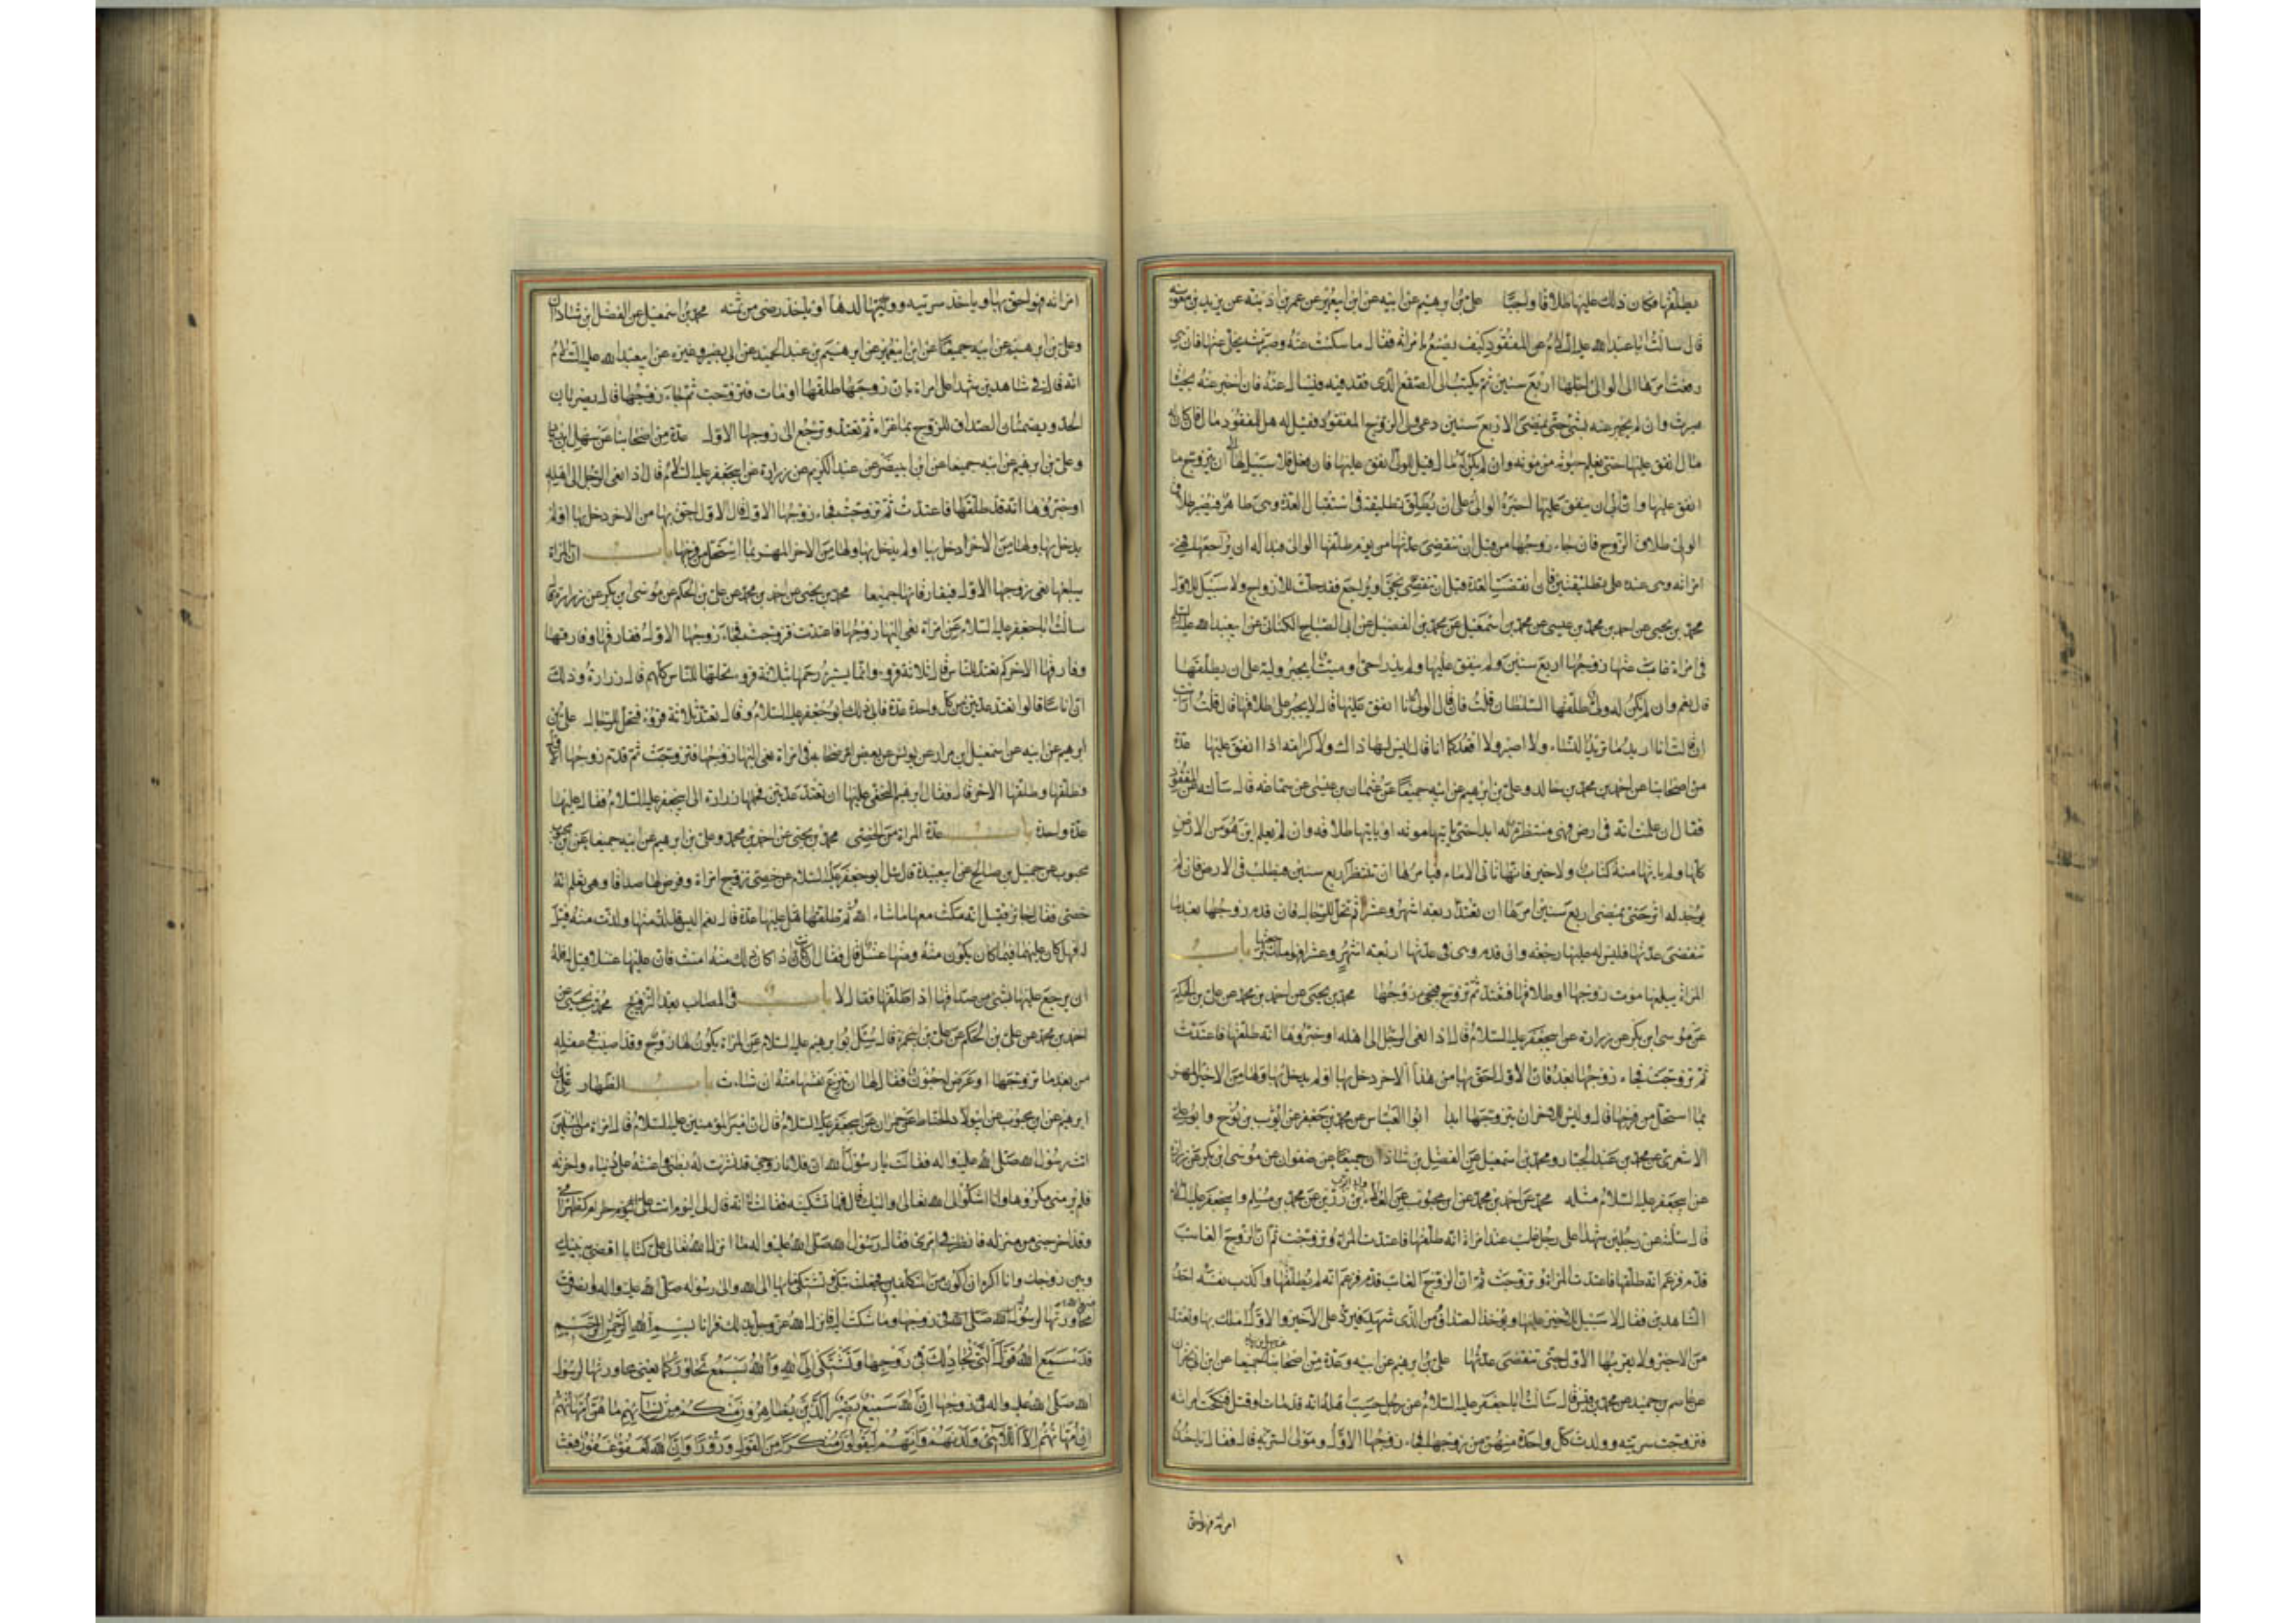 يطلقها فكان ذلك عليها طلاقا واجبا علي بن ابرهيم عن ابيه عن ابن ابي عمير عن عمر بن اذينه عن بريد بن معويه
قال سالت ابا عبد الله عليه السلام عن المفقود كيف يصنع امراته فقال ما سكتت عنه وصبرت يخلى عنها فان هي
رفعت امرها الى الوالي اجلها اربع سنين ثم يكتب الى الصقع الذي فقد فيه فيسال عنه فان اخبر عنه بحيوة
صبرت وان لم يخبر عنه بشئ حتى تمضي الاربع سنين دعى ولي الزوج المفقود فقيل له هل للمفقود مال فان كان له
مال انفق عليها حتى يعلم حيوته من موته وان لم يكن له مال قيل للولي انفق عليها فان فعل فلا سبيل لها الى ان تتزوج ما
انفق عليها وان ابى ان ينفق عليها اجبره الوالي على ان يطلق تطليقة في استقبال العدة وهي طاهر فيصير طلاق
الولي طلاق الزوج فان جاء زوجها من قبل ان تنقضي عدتها من يوم طلقها الوالي فبدا له ان يراجعها فهي
امراته وهي عنده على تطليقتين فان انقضت العدة قبل ان يجئ او يراجع فقد حلت للازواج ولا سبيل للاول
محمد بن يحيى عن احمد بن محمد بن عيسى عن محمد بن اسمعيل عن محمد بن الفضيل عن ابي الصباح الكناني عن ابي عبد الله عليه السلام
في امراة غاب عنها زوجها اربع سنين ولم ينفق عليها ولم يدر احي او ميت ايجبر وليه على ان يطلقها
قال نعم وان لم يكن له ولي طلقها السلطان قلت فان قال الولي انا انفق عليها قال لا يجبر على طلاقها قال قلت ارايت
ان قالت انا اريد ما تريد النساء ولا اصبر ولا اقعد كما انا قال ليس لها ذلك ولا كرامة اذا انفق عليها عدة
من اصحابنا عن احمد بن محمد بن خالد وعلي بن ابرهيم عن ابيه جميعا عن عثمان بن عيسى عن سماعه قال سالته عن المفقود
فقال ان علمت انه في ارض فهي منتظرة له ابدا حتى ياتيها موته او ياتيها طلاقه وان لم تعلم اين هو من الارض
كلها ولم ياتها منه كتاب ولا خبر فانها تاتي الامام فيامرها ان تنتظر اربع سنين فيطلب في الارض فان لم
يوجد له اثر حتى تمضي اربع سنين امرها ان تعتد اربعة اشهر وعشرا ثم تحل للرجال فان قدم زوجها بعد ما
تنقضي عدتها فليس له عليها رجعة وان قدم وهي في عدتها اربعة اشهر وعشرا فهو املك برجعتها باب
المراة يبلغها موت زوجها او طلاقها فتعتد ثم تزوج فيجئ زوجها محمد بن يحيى عن احمد بن محمد عن علي بن الحكم
عن موسى بن بكر عن زرارة عن ابي جعفر عليه السلام قال اذا نعى الرجل الى اهله او خبروها انه طلقها فاعتدت
ثم تزوجت فجاء زوجها بعد فان الاول احق بها من هذا الاخر دخل بها او لم يدخل بها ولها من الاخير المهر
بما استحل من فرجها قال وليس للاخر ان يتزوجها ابدا ابو العباس عن محمد بن جعفر عن ايوب بن نوح وابو علي
الاشعري عن محمد بن عبد الجبار ومحمد بن اسمعيل عن الفضل بن شاذان جميعا عن صفوان عن موسى بن بكر عن زرارة
عن ابي جعفر عليه السلام مثله محمد عن احمد بن محمد عن ابن محبوب عن العلاء بن رزين عن محمد بن مسلم وابي جعفر عليه السلام
قال سالته عن رجلين شهدا على رجل غايب عند امراة انه طلقها فاعتدت المراة وتزوجت ثم ان الزوج الغايب
قدم فزعم انه طلقها فاعتدت المراة وتزوجت ثم ان الزوج الغايب قدم فزعم انه لم يطلقها واكذب نفسه احد
الشاهدين فقال لا سبيل للاخير عليها ويؤخذ الصداق من الذي شهد فيرد على الاخير والاول املك بها وتعتد
من الاخير ولا يقربها الاول حتى تنقضي عدتها علي بن ابرهيم عن ابيه وعدة من اصحابنا جميعا عن ابن ابي نجران
عن عاصم بن حميد عن محمد بن قيس قال سالت ابا جعفر عليه السلام عن رجل حسب اهله انه قد مات او قتل فنكحت امراته
فتزوجت سريته وولدت كل واحدة منهن من زوجها فجاء زوجها الاول ومولى السرية قال فقال ياخذ
امراته فهو احق
امراته فهو احق بها وياخذ سريته وولدها او ياخذ رضى من ثمنه محمد بن اسمعيل عن الفضل بن شاذان
وعلي بن ابرهيم عن ابيه جميعا عن ابن ابي عمير عن ابرهيم بن عبد الحميد عن ابي بصير وغيره عن ابي عبد الله عليه السلام
انه قال في شاهدين شهدا على امراة بان زوجها طلقها او مات فتزوجت ثم جاء زوجها قال يضربان
الحد ويضمنان الصداق للزوج بما غراه ثم تعتد وترجع الى زوجها الاول عدة من اصحابنا عن سهل بن زياد
وعلي بن ابرهيم عن ابيه جميعا عن ابن ابي نصر عن عبد الكريم عن زرارة عن ابي جعفر عليه السلام قال اذا نعى الرجل الى اهله
او خبروها انه قد طلقها فاعتدت ثم تزوجت فجاء زوجها الاول قال الاول احق بها من الاخر دخل بها او لم
يدخل بها ولها من الاخر المهر بما استحل من فرجها باب ان المراة
يبلغها نعى زوجها الاول فيفارقانها جميعا محمد بن يحيى عن احمد بن محمد عن علي بن الحكم عن موسى بن بكر عن زرارة قال
سالت ابا جعفر عليه السلام عن امراة نعي اليها زوجها فاعتدت فتزوجت فجاء زوجها الاول ففارقها وفارقها
وفارقها الاخر كم تعتد للناس قال ثلاثة قروء وانما يستبرء رحمها بثلاثة قروء تحلها للناس كلهم قال زرارة وذلك
ان اناسا قالوا تعتد عدتين من كل واحدة عدة فابى ذلك ابو جعفر عليه السلام وقال تعتد ثلاثة قروء فتحل للرجال علي بن
ابرهيم عن ابيه عن اسمعيل بن مرار عن يونس عن بعض اصحابه في امراة نعي اليها زوجها فتزوجت ثم قدم زوجها الاول
فطلقها وطلقها الاخر قال فقال ابرهيم النخعي عليها ان تعتد عدتين فحملها زرارة الى ابي جعفر عليه السلام فقال عليها
عدة واحدة باب عدة المراة من الخصي محمد بن يحيى عن احمد بن محمد وعلي بن ابرهيم عن ابيه جميعا عن ابن
محبوب عن جميل بن صالح عن ابي عبيدة قال سئل ابو جعفر عليه السلام عن خصي تزوج امراة وفرض لها صداقا وهي تعلم انه
خصي فقال جائز فقيل انه مكث معها ما شاء الله ثم طلقها هل عليها عدة قال نعم اليس قد لذ منها ولذت منه قيل
له فهل كان عليهما فيما كان يكون منه ومنها غسل قال فقال ان كان اذا كان ذلك منه امنت فان عليها غسلا قيل له فله
ان يرجع عليها بشئ من صداقها اذا طلقها فقال لا باب في المصاب بعد التزويج محمد بن يحيى عن
احمد بن محمد عن علي بن الحكم عن علي بن ابي حمزة قال سئل ابو ابرهيم عليه السلام عن المراة يكون لها زوج وقد اصيب في عقله
من بعد ما تزوجها او عرض له جنون فقال لها ان تنزع نفسها منه ان شاءت باب الظهار علي بن
ابرهيم عن ابن محبوب عن ابي ولاد الحناط عن حمران عن ابي جعفر عليه السلام قال ان امير المؤمنين عليه السلام قال ان امراة من المسلمين
اتت رسول الله صلى الله عليه واله فقالت يا رسول الله ان فلانا زوجي قد نثرت له بطني واعنته على دنياه واخرته
فلم ير مني مكروها وانا اشكو الى الله تعالى واليك قال فما تشكينه فقالت انه قال لي اليوم انت علي حرام كظهر امي
وقد اخرجني من منزلي فانظر في امري فقال رسول الله صلى الله عليه واله ما انزل الله تعالى علي كتابا اقضي بينك
وبين زوجك وانا اكره ان اكون من المتكلفين فجعلت تبكي وتشتكي ما بها الى الله والى رسوله صلى الله عليه واله وانصرفت
محاورتها لرسول الله صلى الله في زوجها وما شكت اليه فانزل الله عز وجل بذلك قرانا بسم الله الرحمن الرحيم
قد سمع الله قول التي تجادلك في زوجها وتشتكي الى الله والله يسمع تحاوركما يعني محاورتها لرسول
الله صلى الله عليه واله في زوجها ان الله سميع بصير الذين يظاهرون منكم من نسائهم ما هن امهاتهم
ان امهاتهم الا اللائي ولدنهم وانهم ليقولون منكرا من القول وزورا وان الله لعفو غفور فبعث